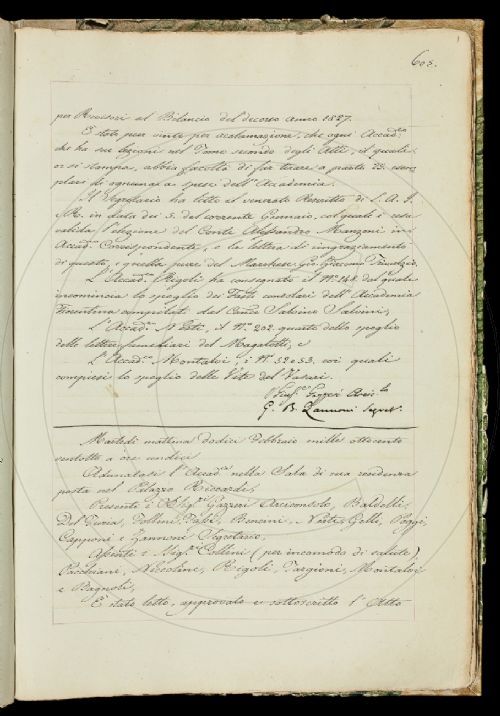 605.
per Revisori al Bilancio del decorso anno 1827.
È stato pur vinto per acclamazione, che ogni Accad.co
che ha sue lezioni nel Tomo secondo degli Atti, il quale
or si stampa, abbia facoltà di far tirare a parte
di ognuna a spese dell'Accademia.
Il Segretario ha letto il venerato Rescritto di S. A. I.
R. in data dei 5. del corrente Gennaio, col quale è resa
valida l'elezione del Conte Alessandro Manzoni in
Accad.co Corrispondente, e la lettera di ringraziamento
di questo, e quella pure del Marchese Gio. Giacomo Trivulzio.
L'Accad.co Rigoli ha consegnato il N.o 148. dal quale
incomincia lo spoglio dei Fasti consolari dell'Accademia
Fiorentina compilati dal Can.co Salvino Salvini,
L'Accad.co Nesti, il N.o 202. quarto dello spoglio
delle lettere familiari del Magalotti, e
L'Accad.co Montalvi, i N.i 52 e 53, coi quali
compiesi lo spoglio delle Vite del Vasari.
G. B. Zannoni Segret.o
Martedì mattina dodici Febbraio mille ottocento
ventotto a ore undici
Adunatasi l'Accad.a nella Sala di sua residenza
posta nel Palazzo Riccardi,
Presenti i Sig.ri Gazzeri Arciconsolo, Baldelli,
Del Furia, Follini, Bencini, Nesti, Gelli, Poggi,
Capponi e Zannoni Segretario.
Assenti i Sig.ri Collini (per incomodo di salute),
Pacchiani, Niccolini, Rigoli, Targioni, Montalvi
e Bagnoli,
È stato letto, approvato e sottoscritto l'Atto